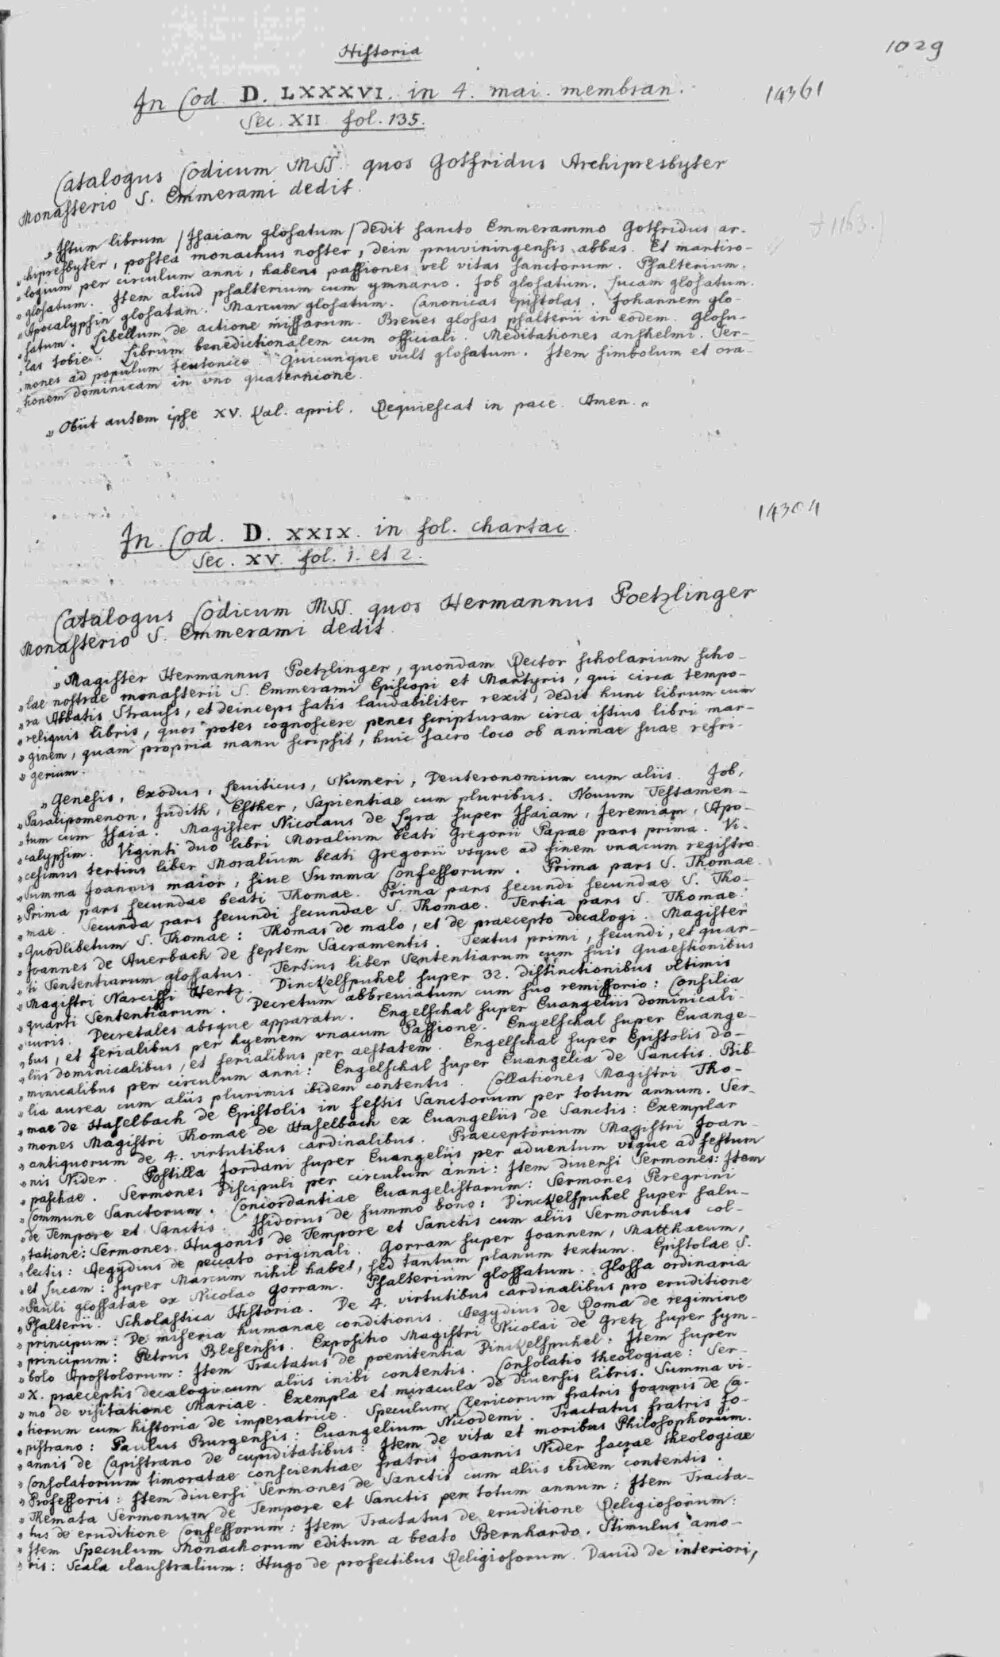 Historia
1029
In Cod. D. LXXXVI. in 4. mai. membran.
14361
Sec. XII fol. 135.
Catalogus Codicum MSS. quos Gotfridus Archipresbyter
Monasterio S. Emmerami dedit.
„Istum librum /Isaiam glosatum/ dedit sancto Emmerammo Gotfridus ar-
„chipresbyter, postea monachus noster, dein pruviningensis abbas. Et martiro-
† 1163.)
„logium per circulum anni, habens passiones vel vitas sanctorum. Psalterium.
„glosatum. Item aliud psalterium cum ymnario. Job glosatum. Lucam glosatum.
„Apocalypsin glosatam. Marcum glosatum. Canonicas epistolas. Johannem glo-
„satum. Libellum de actione missarum. Breues glosas psalterii in eodem. Glosu-
„las tobie. Librum benedictionalem cum officiali. Meditationes anshelmi. Ser-
„mones ad populum teutonice. Quicunque vult glosatum. Item simbolum et ora-
„tionem dominicam in vno quaternione.
„Obiit autem ipse XV. Kal. april. Requiescat in pace. Amen.„
14304
In Cod. D. XXIX. in fol. chartac.
Sec. XV. fol. 1. et 2.
Catalogus Codicum MSS. quos Hermannus Poetzlinger
Monasterio S. Emmerami dedit.
„Magister Hermannus Poetzlinger, quondam Rector scholarium scho-
„lae nostrae monasterii S. Emmerami Episcopi et Martyris, qui circa tempo-
„ra Abbatis Strauss, et deinceps satis laudabiliter rexit, dedit hunc librum cum
„reliquis libris, quos potes cognoscere penes scripturam circa istius libri mar-
„ginem, quam propria manu scripsit, huic sacro loco ob animae suae refri-
„gerium.
„Genesis, Exodus, Leuiticus, Numeri, Deuteronomium cum aliis. Job,
„Paralipomenon, Judith, Esther, Sapientiae cum pluribus. Novum Testamen-
„tum cum Isaia. Magister Nicolaus de Lyra super Isaiam, Jeremiam, Apo-
„calypsim. Viginti duo libri Moralium beati Gregorii Papae pars prima. Vi-
„cesimus tertius liber Moralium beati Gregorii vsque ad finem vnacum registro
„Summa Joannis maior, siue Summa Confessorum. Prima pars S. Thomae.
„Prima pars secundae beati Thomae. Prima pars secundi secundae S. Tho-
„mae. Secunda pars secundi secundae S. Thomae. Tertia pars S. Thomae.
„Quodlibetum S. Thomae: Thomas de malo, et de praecepto decalogi. Magister
„Joannes de Auerbach de septem Sacramentis. Textus primi, secundi, et quar-
„ti Sententiarum glossatus. Tertius liber Sententiarum cum suis Quaestionibus
„Magistri Narcissi Hertz. Dinckelspuhel super 32. distinctionibus vltimis
„quarti Sententiarum. Decretum abbreviatum cum suo remissorio: Consilia
„iuris. Decretales absque apparatu. Engelschal super Euangeliis dominicali-
„bus, et ferialibus per hyemem vnacum Passione. Engelschal super Euange-
„liis dominicalibus, et ferialibus per aestatem. Engelschal super Epistolis do-
„minicalibus per circulum anni: Engelschal super Euangelia de Sanctis. Bib-
„lia aurea cum aliis plurimis ibidem contentis. Collationes Magistri Tho-
„mae de Haselbach de Epistolis in festis Sanctorum per totum annum. Ser-
„mones Magistri Thomae de Haselbach ex Euangeliis de Sanctis: Exemplar
„antiquorum de 4. virtutibus cardinalibus. Praeceptorium Magistri Joan-
„nis Nider. Postilla Jordani super Euangeliis per aduentum vsque ad festum
„paschae. Sermones Discipuli per circulum anni: Item diuersi Sermones: Item
„Commune Sanctorum. Concordantiae Euangelistarum: Sermones Peregrini
„de Tempore et Sanctis. Isidorus de summo bono: Dinckelspuhel super salu-
„tatione: Sermones Hugonis de Tempore et Sanctis cum aliis Sermonibus col-
„lectis: Aegydius de peccato originali. Gorram super Joannem, Matthaeum,
„et Lucam: super Marcum nihil habet, sed tantum planum textum. Epistolae S.
„Pauli glossatae ex Nicolao Gorram. Psalterium glossatum. Glossa ordinaria
„Psalterii. Scholastica Historia. De 4. virtutibus cardinalibus pro eruditione
„principum: De miseria humanae conditionis. Aegydius de Roma de regimine
„principum: Petrus Blesensis. Expositio Magistri Nicolai de Gretz super sym-
„bolo Apostolorum: Item Tractatus de poenitentia Dinckelspuhel: Item super
„X. praeceptis decalogi cum aliis inibi contentis. Consolatio theologiae: Ser-
„mo de visitatione Mariae. Exempla et miracula de diuersis libris. Summa vi-
„tiorum cum historia de imperatrice. Speculum Clericorum fratris Joannis de Ca-
„pistrano: Paulus Burgensis: Euangelium Nicodemi. Tractatus fratris Jo-
„annis de Capistrano de cupiditatibus: Item de vita et moribus Philosophorum.
„Consolatorium timoratae conscientiae fratris Joannis Nider sacrae theologiae
„Professoris: Item diuersi Sermones de Sanctis cum aliis ibidem contentis.
„Themata Sermonum de Tempore et Sanctis per totum annum: Item Tracta-
„tus de eruditione Confessorum: Item Tractatus de eruditione Religiosorum:
„Item Speculum Monachorum editum a beato Bernhardo. Stimulus amo-
„ris: Scala claustralium: Hugo de profectibus Religiosorum. Dauid de interiori,